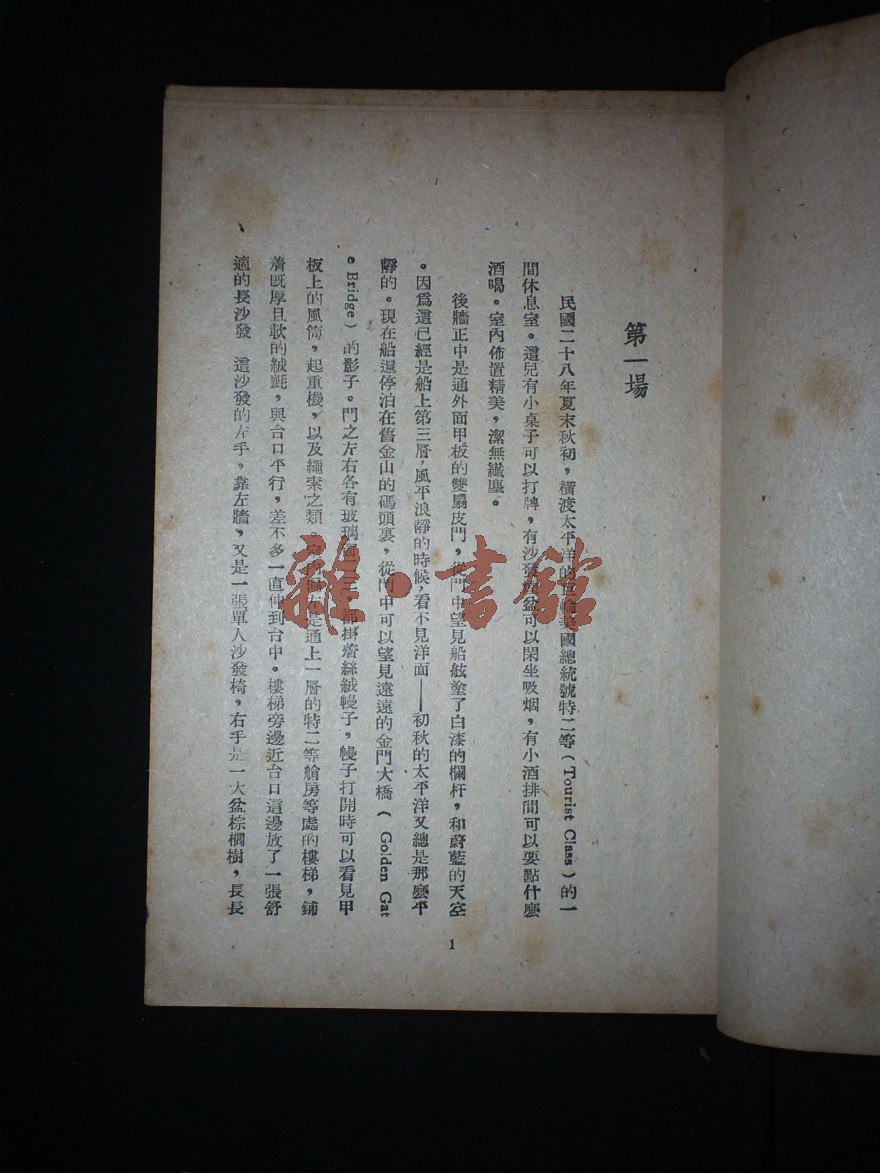 第一場
民國二十八年夏末秋初，橫渡太平洋的美國總統號特二等（Tourist Class）的一
間休息室。這兒有小桌子可以打牌，有沙發可以閑坐吸烟，有小酒排間可以要點什麽
酒喝。室內佈置精美，潔無纖塵。
後牆正中是通外面甲板的雙扇皮門，從門中望見船舷塗了白漆的欄杆，和蔚藍的天空
。因爲這已經是船上第三層，風平浪靜的時候，看不見洋面——初秋的太平洋又總是那麽平
靜的。現在船還停泊在舊金山的碼頭裏，從門中可以望見遠遠的金門大橋（Golden Gat
e Bridge）的影子。門之左右各有玻璃窗，都掛着絲絨幔子，幔子打開時可以看見甲
板上的風筒，起重機，以及繩索之類。是通上一層的特二等艙房等處的樓梯，鋪
着旣厚且軟的絨氈，與台口平行，差不多一直伸到台中。樓梯旁邊近台口這邊放了一張舒
適的長沙發　這沙發的左手，靠左牆，又是一張單人沙發椅，右手是一大盆棕櫚樹，長長
1
雜·書館